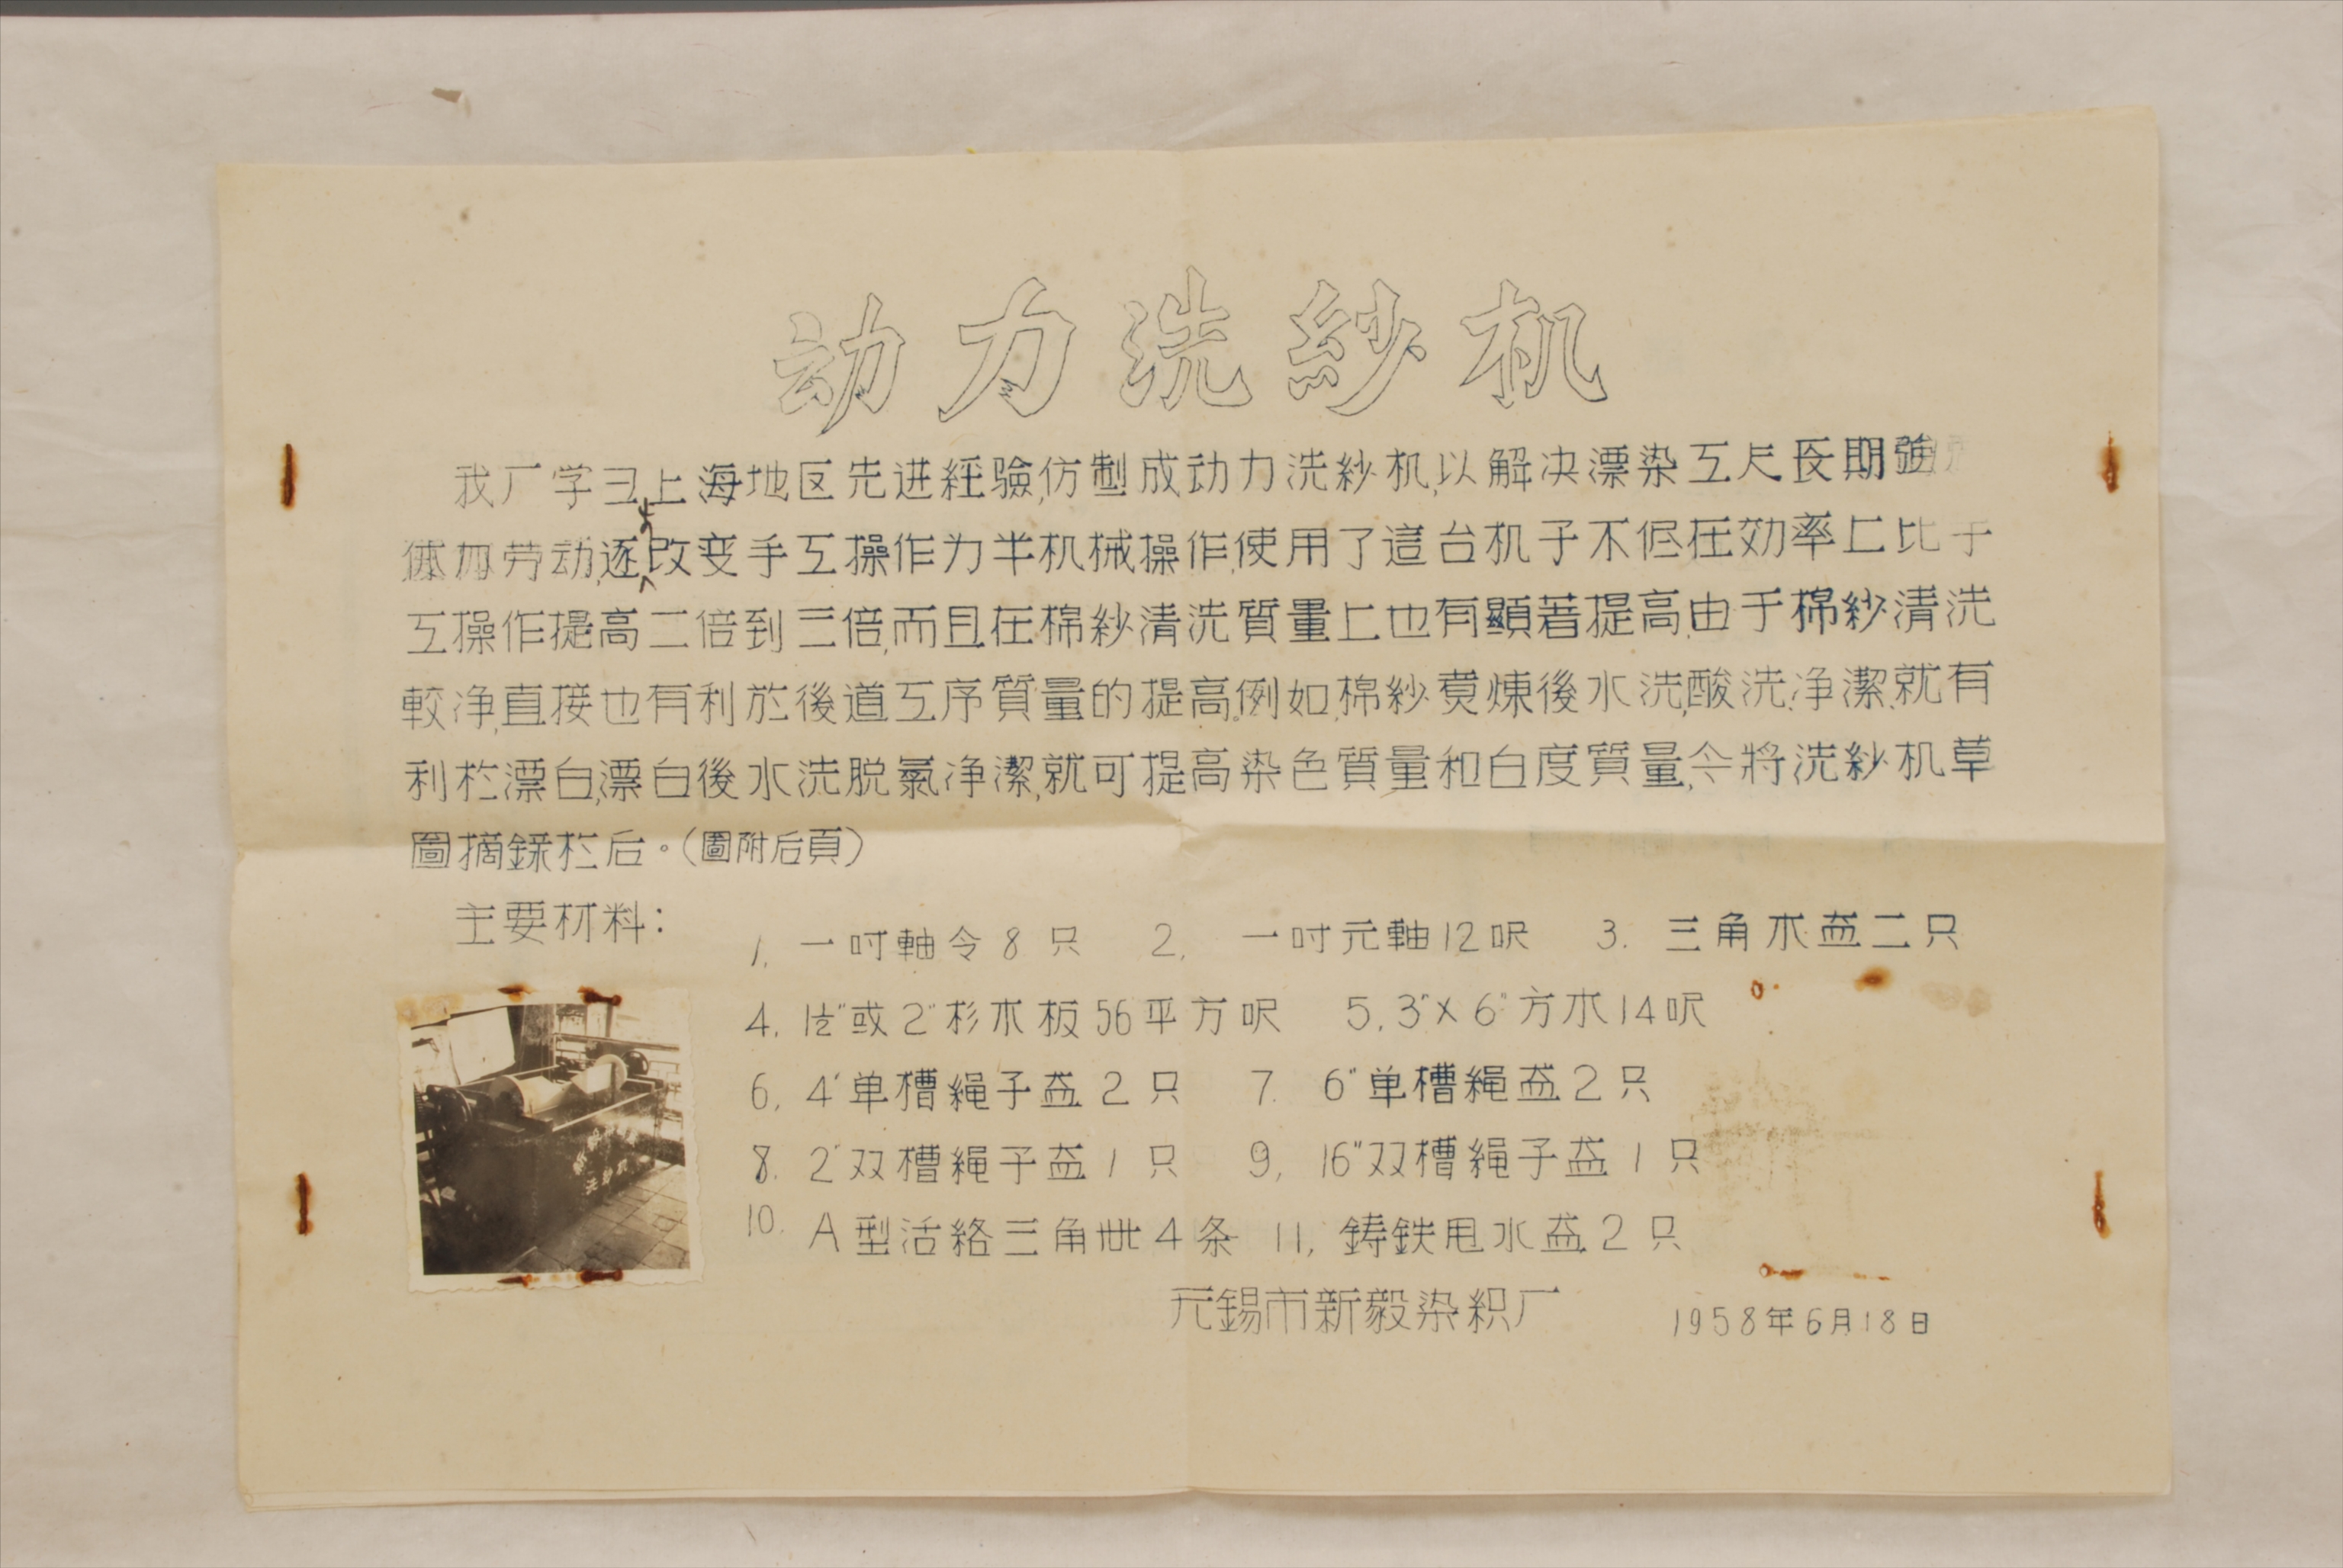 动力洗紗机
我厂学习上海地区先进經驗,仿製成动力洗紗机,以解决漂染工尺長期強
体力劳动,逐步改变手工操作为半机械操作,使用了這台机子不但在効率上比手
工操作提高二倍到三倍,而且在棉紗清洗質量上也有顯著提高,由于棉紗清洗
較净,直接也有利於後道工序質量的提高。例如,棉紗煑煉後水洗,酸洗净潔,就有
利於漂白,漂白後水洗脱氯净潔,就可提高染色質量和白度質量,今將洗紗机草
圖摘錄於后。(圖附后頁)
主要材料:
1, 一吋軸令8只 2, 一吋元軸12呎 3. 三角木盆二只
4, 1½"或2"杉木板56平方呎 5, 3"×6"方木14呎
6, 4"单槽繩子盆2只 7. 6"单槽繩盆2只
8. 2"双槽繩子盆1只 9, 16"双槽繩子盆1只
10. A型活絡三角丗4条 11, 鋳鉄甩水盆2只
无錫市新毅染织厂 1958年6月18日